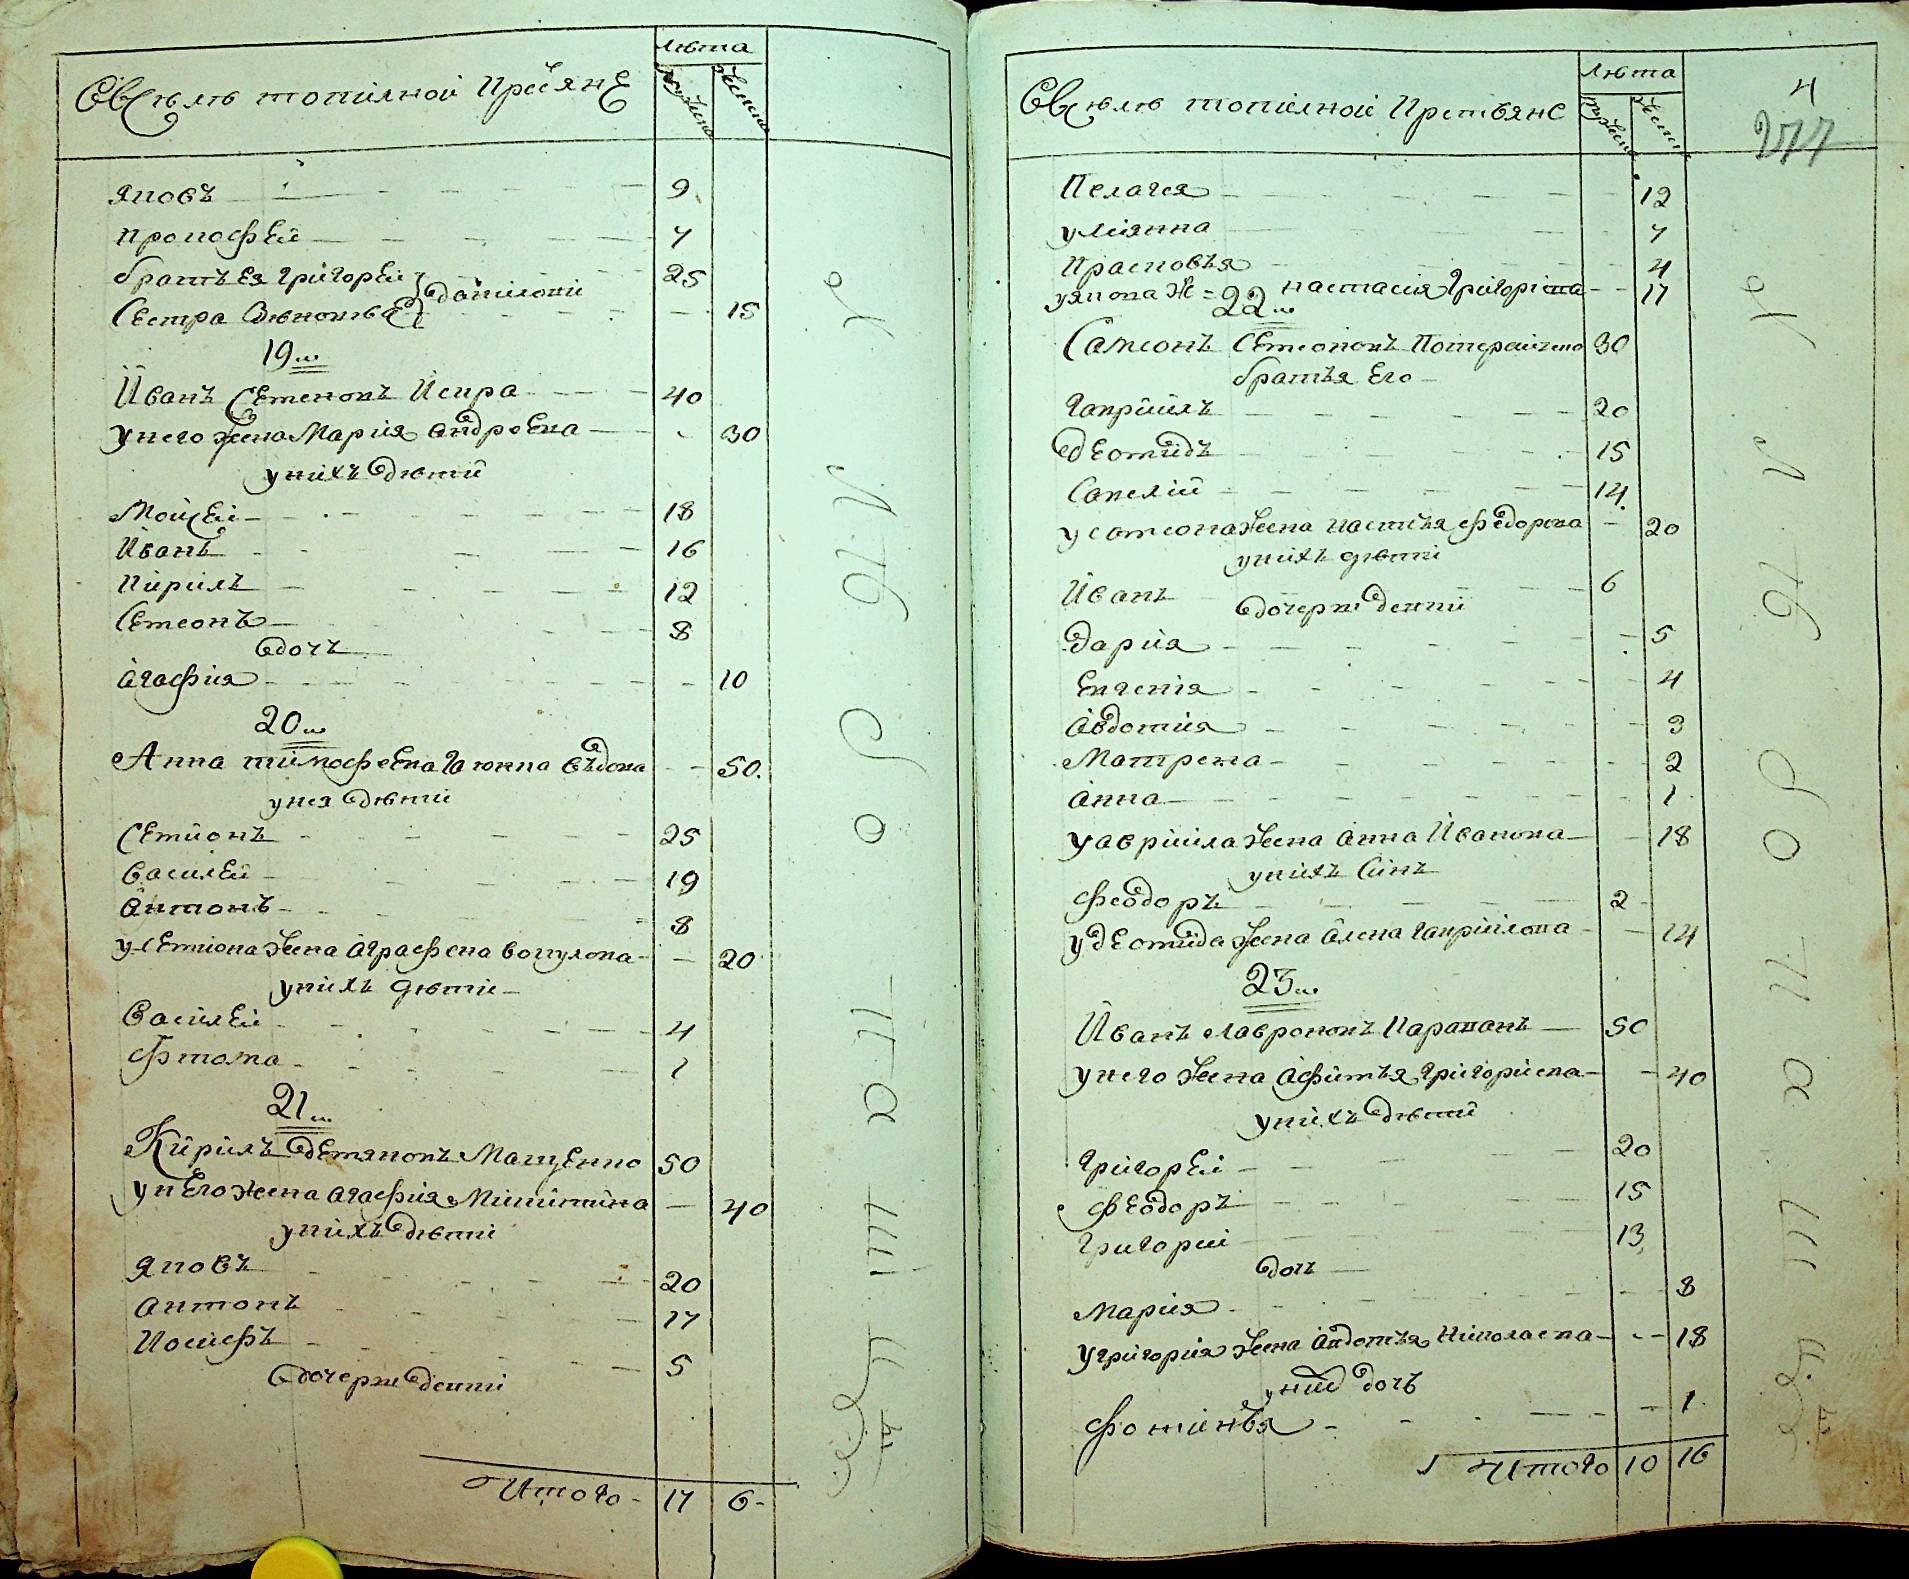 Въ селѣ топилной Крестянѣ
лѣта
мужеска
женска
Яковъ 9
Прокофѣй 7
братъ ег Григорѣй 25
Даниловы
Сестра Зѣновѣя 15
19ш
Иванъ Семеновъ Искра 40
У него жена Мария андрѣева 30
у нихъ дѣтий
Мойсѣй 18
Иванъ 16
Кирилъ 12
Семѳонъ 8
дочъ
Агафия 10
20ш
Анна тимофеева вѣдова 50.
у нея дѣтий
Семионъ 25
Василѣй 19
Антонъ 8
у Семиона жена Аграфена вокулова 20
у нихъ дѣтий
Василѣй 4
Фтома 1
21ш
Кирилъ Демяновъ Мащенко 50
У него жена агафия Микитина 40
у нихъ дѣтий
Яковъ 20
антонъ 17
Иосифъ 5
дочерки денти
Итого 17 6
Въ селѣ топилной Крестьянѣ
лѣта
мужеска
женска
4
277
Пелагея 12
улияна 7
Прасковья 4
у якова ж = настасия Григорива 17
22ш
Самсонъ Семионовъ 30
братья Его
Гаврийлъ 20
дѣомидъ 15
Савелий 14
у самсона жена настасья федорова 20
у нихъ дѣтий
Иванъ 6
дочерки денти
Дария 5
Евгения 4
Авдотия 3
Матрена 2
Анна 1
у аврийла жена анна Иванова 18
у нихъ Синъ
Феодоръ 2
у дѣомида жена Алена гаврийлова 14
23ш
Иванъ лавроновъ Карапанъ 50
у него жена Афимья Григориева 40
у нихъ дѣтий
Григорѣй 20
Феодоръ 15
Григорий 13
дочъ
Мария 8
У григория жена Авдотья Николаева 18
у них дочь
Фотинья 1
Итого 10 16